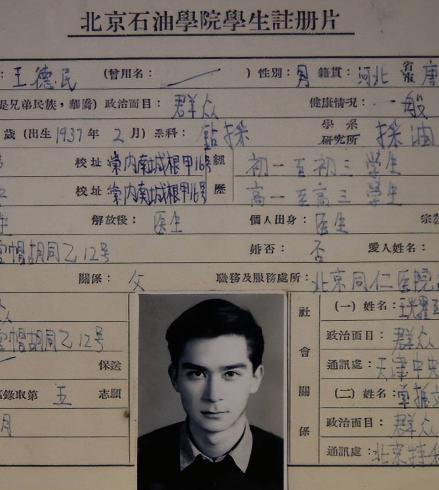 北京石油學院學生註册片
: 王德民 (曾用名: ) 性別: 男 籍貫: 河北 省 唐
是兄弟民族,華僑) 政治面目: 群众 健康情况: 一般
歲 (出生1937年 2月) 系科: 鈷採 學系 研究所 採油
校址 崇内南城根甲16号 經 初一至初三 学生
校址 崇内南城根甲16号 歷 高一至高三 学生
生 解放後: 医生 個人出身: 医生 宗
帽胡同乙12号 婚否: 否 愛人姓名:
關係: 父 職務及服務處所: 北京同仁医院
众 社會關係 (一) 姓名: 王光
帽胡同乙12号 政治面目: 群众
保送 通訊處: 天津中央
錄取第 五 志願 (二) 姓名:
月 政治面目: 群众
通訊處: 北京